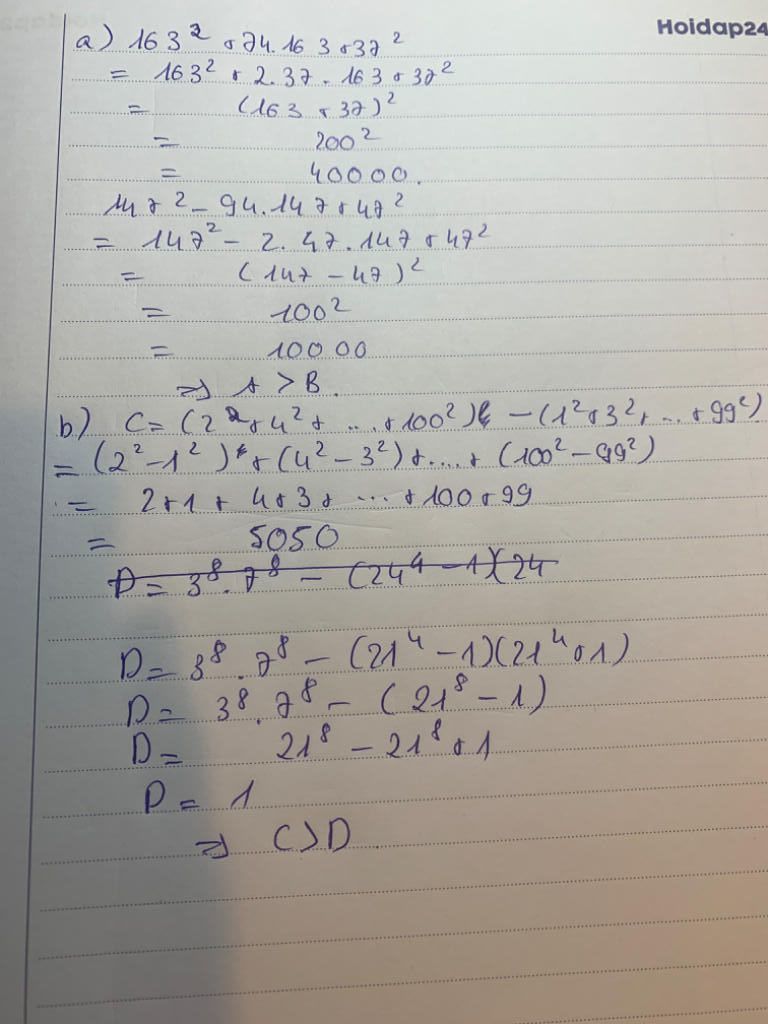 Hoidap24
a) 163² + 74.163+37²
= 163² + 2.37.163+37²
= (163+37)²
= 200²
= 40000.
147² - 94.147+47²
= 147² - 2.47.147+47²
= (147-47)²
= 100²
= 10000
=> A > B.
b) C= (2²+4²+ ...+100²) - (1²+3²+ ...+99²)
= (2²-1²) + (4²-3²)+....+ (100²-99²)
= 2+1+ 4+3+ ...+100+99
= 5050
D = 3⁸.7⁸ - (24⁴-1)(24
D= 3⁸.7⁸ - (21⁴-1)(21⁴+1)
D= 3⁸.7⁸ - (21⁸-1)
D= 21⁸ - 21⁸+1
D= 1
=> C>D.